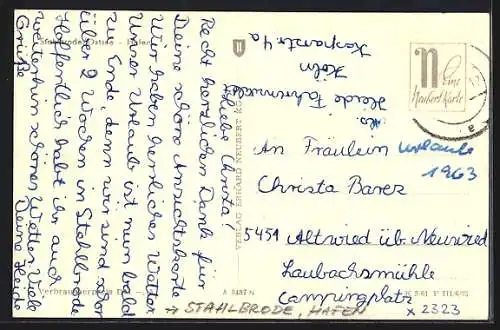 Stahlbrode Ostsee - Hafen
Liebe Christa!
Recht herzlichen Dank für
Deine schöne Ansichtskarte
Wir haben herrliches Wetter
Unser Urlaub ist nun bald
zu Ende, denn wir sind schon
über 2 Wochen in Stahlbrode
Hoffentlich habt ihr auch
weiterhin schönes Wetter. Viele
Grüße Deine Heide
VERLAG ERHARD NEUBERT KG
Abs.
Heide
Köln
Kasparstr 4a
n
eine
Neubert Karte
An Fräulein
Urlaub
1963
Christa Barez
5451 Altwied üb. Neuwied
Laubachsmühle
Campingplatz
→ STAHLBRODE, HAFEN
x 2323